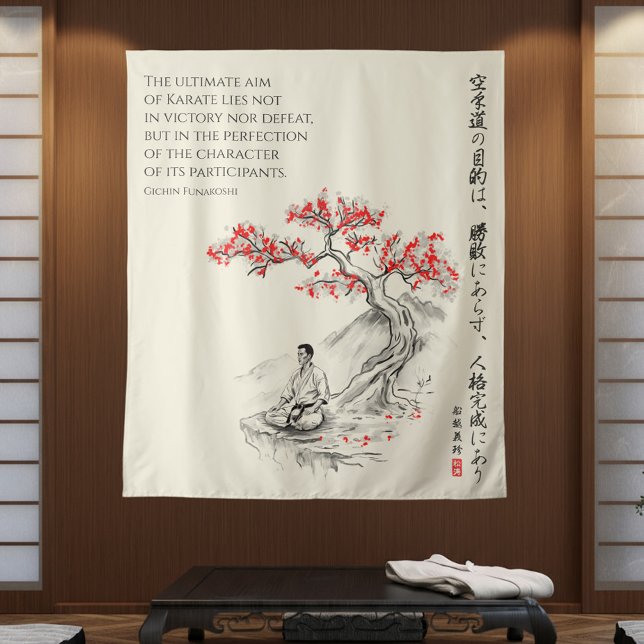 The ultimate aim
of Karate lies not
in victory nor defeat,
but in the perfection
of the character
of its participants.
Gichin Funakoshi
空手道の目的は、勝敗にあらず、人格完成にあり
船越義珍
松涛